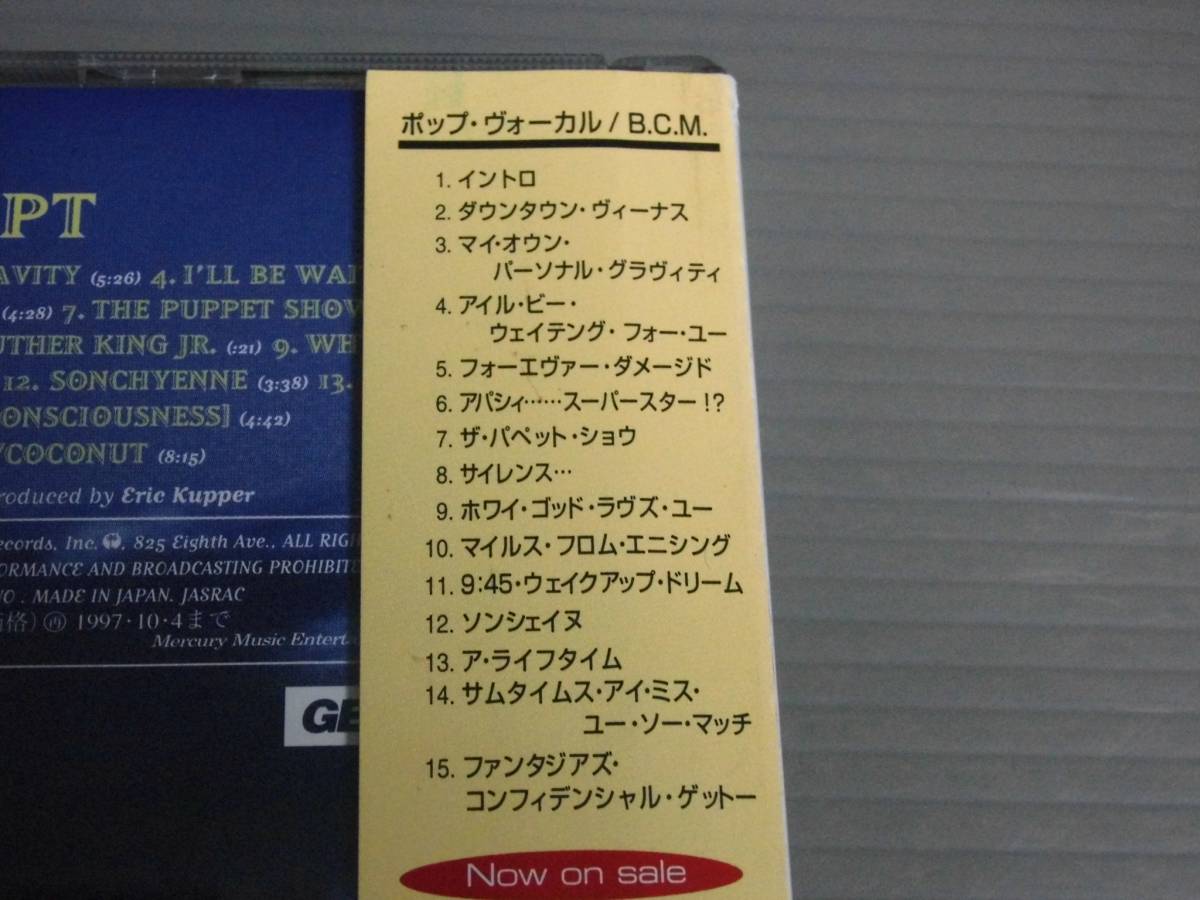 PT
AVITY (5:26) 4. I'LL BE WAI
(4:28) 7. THE PUPPET SHOW
UTHER KING JR. (:21) 9. WH
12. SONCHYENNE (3:38) 13.
ONSCIOUSNESS] (4:42)
/COCONUT (8:15)
roduced by Eric Kupper
ecords, Inc. 825 Eighth Ave., ALL RIGH
ORMANCE AND BROADCASTING PROHIBITE
O. MADE IN JAPAN. JASRAC
価格) 再 1997・10・4まで
Mercury Music Entert
GE
ポップ・ヴォーカル / B.C.M.
1. イントロ
2. ダウンタウン・ヴィーナス
3. マイ・オウン・
パーソナル・グラヴィティ
4. アイル・ビー・
ウェイテング・フォー・ユー
5. フォーエヴァー・ダメージド
6. アパシィ……スーパースター!?
7. ザ・パペット・ショウ
8. サイレンス…
9. ホワイ・ゴッド・ラヴズ・ユー
10. マイルス・フロム・エニシング
11. 9:45・ウェイクアップ・ドリーム
12. ソンシェイヌ
13. ア・ライフタイム
14. サムタイムス・アイ・ミス・
ユー・ソー・マッチ
15. ファンタジアズ・
コンフィデンシャル・ゲットー
Now on sale